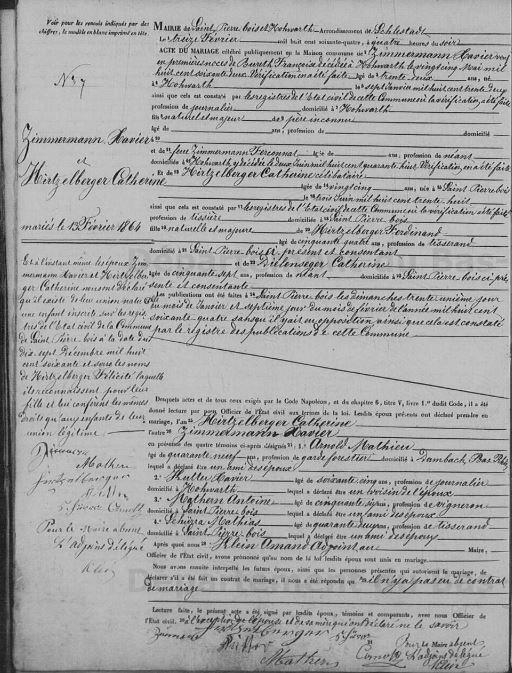 Voir pour les renvois indiqués par des
chiffres, le modèle en blanc imprimé en tête.
N.° 7
Zimmermann Xavier
et
Hirtzelberger Catherine
mariés le 13 Février 1864
Et à l'instant même les époux Zim-
mermann Xavier et Hirtzelber-
ger Catherine nous ont déclaré
qu'il existe de leur union naturelle
un enfant inscrit sur les regis-
tres de l'état civil de la Commune
de Saint Pierre bois à la date du
dix sept Décembre mil huit
cent soixante et sous les noms
de Hirtzelberger Félicité laquelle
ils reconnaissent pour leur
fille et lui confèrent les mêmes
droits qu'aux enfants de leur
union légitime
Mathern
Pour le Maire absent
L'adjoint délégué
Klein
MAIRIE de Saint Pierre bois et Hohwarth Arrondissement de Schlestadt
Le treize Février mil huit cent soixante-quatre, à quatre heures du soir
ACTE DU MARIAGE célébré publiquement en la Maison commune de Zimmermann Xavier veuf
en premières noces de Françoise décédée à Hohwarth le vingt cinq Mai mil
huit cent soixante deux Vérification en a été faite âgé de trente deux ans, né
à Hohwarth le sept Janvier mil huit cent trente deux
ainsi que cela est constaté par les registres de l'Etat civil de cette Commune ici la vérification a été faite
profession de journalier domicilié à Hohwarth
fils naturel et majeur de père inconnu
âgé de ans, profession de domicilié
et de feue Zimmermann âgée de ans, profession de néant
domiciliée à Hohwarth y décédée le deux Juin mil huit cent quarante huit Vérification en a été faite
Et de Hirtzelberger Catherine célibataire
âgée de vingt cinq ans, née à Saint Pierre bois
le trois Juin mil huit cent trente huit
ainsi que cela est constaté par les registres de l'état civil de cette Commune ici la vérification a été faite
profession de domiciliée à Saint Pierre bois
fille naturelle et majeure de Hirtzelberger Ferdinand
âgé de cinquante quatre ans, profession de tisserand
domicilié à Saint Pierre bois ci présent et consentant
et de Catherine
âgée de cinquante sept ans, profession de néant domiciliée à Saint Pierre bois ci pré-
sente et consentante
Les publications ont été faites à Saint Pierre bois les dimanches trente unième jour
du mois de Janvier et septième jour du mois de Février de l'année mil huit cent
soixante quatre sans qu'il y ait eu opposition ainsi que cela est constaté
par le registre des publications de cette Commune
Desquels actes et de tous ceux exigés par le Code Napoléon, et du chapitre 6, titre V, livre 1.er dudit Code, il a été
donné lecture par nous Officier de l'État civil aux termes de la loi. Lesdits époux présents ont déclaré prendre en
mariage, l'un Hirtzelberger Catherine
l'autre Zimmermann Xavier
en présence des quatre témoins ci-après désignés 1.° Arnold Mathieu
âgé de quarante neuf ans, profession de garde forestier domicilié à Dambach, Bas Rhin
lequel a déclaré être un ami des époux
2.° Xavier âgé de soixante cinq ans, profession de journalier
domicilié à Hohwarth lequel a déclaré être un voisin de l'époux
3.° Mathern Antoine âgé de cinquante six ans, profession de vigneron
domicilié à Saint Pierre bois lequel a déclaré être un ami des époux
4.° Mathias âgé de quarante deux ans, profession de tisserand
domicilié à Saint Pierre bois lequel a déclaré être un ami des époux
Après quoi nous Klein Amand Adjoint au Maire,
Officier de l'État civil, avons prononcé qu'au nom de la loi lesdits époux sont unis en mariage.
Nous avons ensuite interpellé les futurs époux, ainsi que les personnes présentes qui autorisent le mariage, de
déclarer s'il a été fait un contrat de mariage, il nous a été répondu qu'il n'y a pas eu de contrat
de mariage
Lecture faite, le présent acte a été signé par lesdits époux, témoins et comparants, avec nous Officier de
l'État civil. à l'exception de l'épouse et de sa mère qui ont déclaré ne le savoir
Mathern
Pour le Maire absent
L'adjoint délégué
Klein